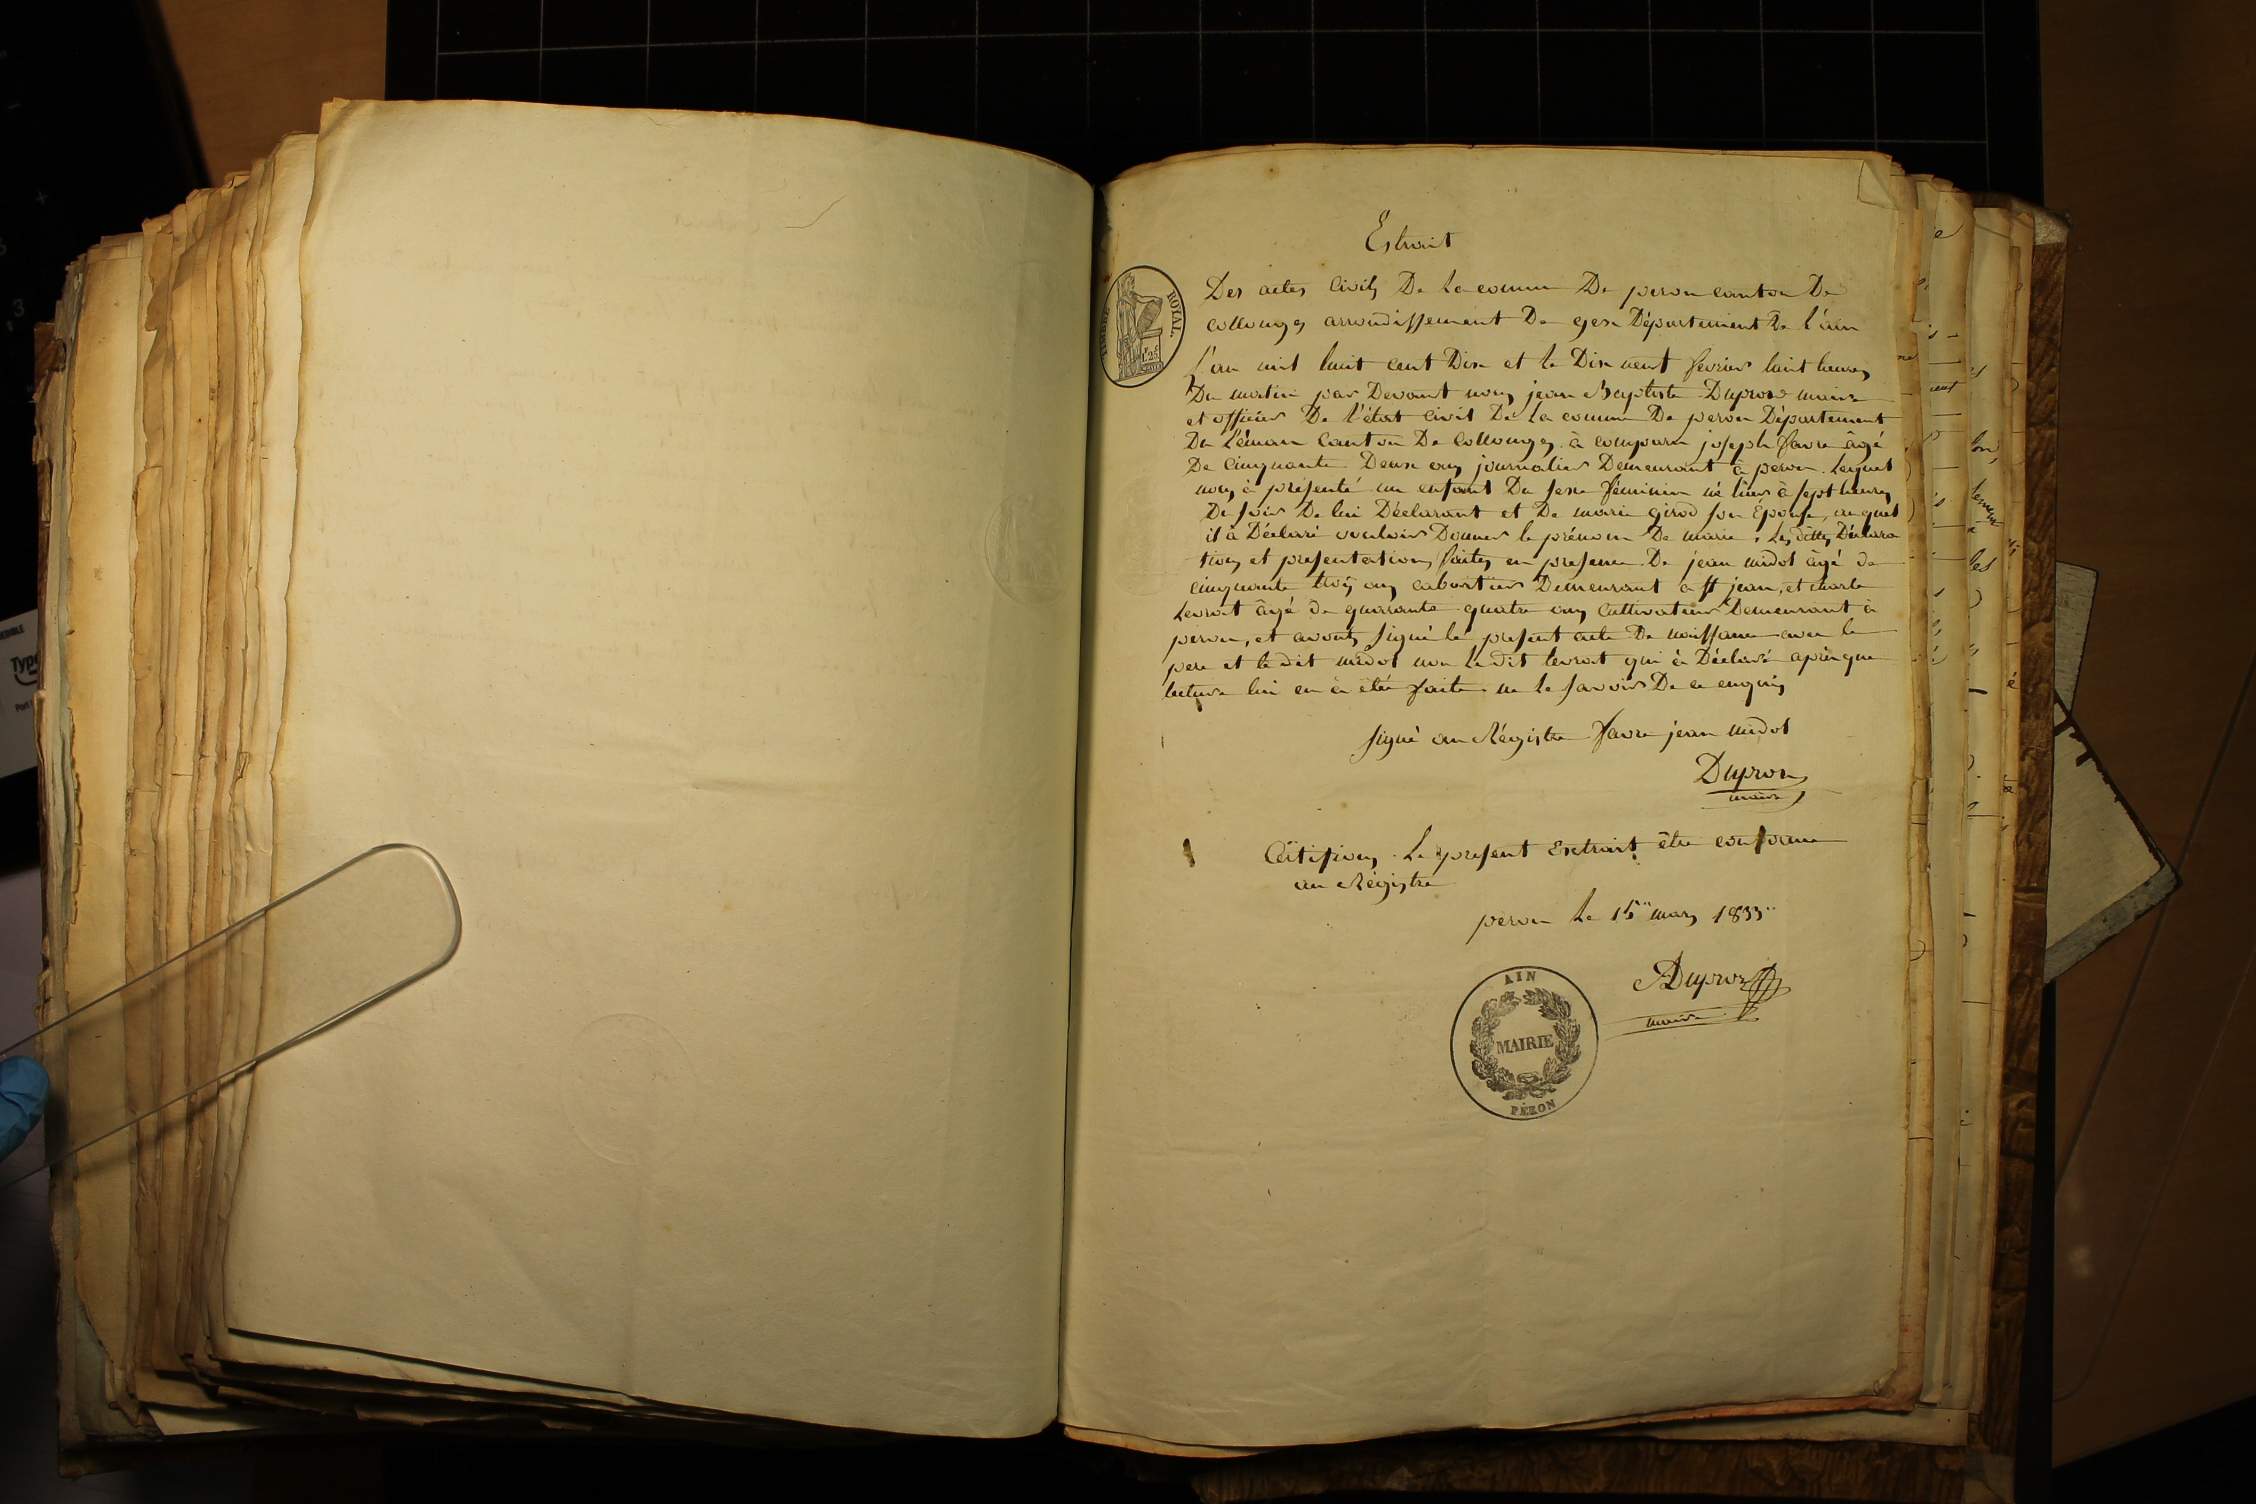 Estrait
TIMBRE ROYAL
1 25
Des actes Civils De la comm De peron canton De
collonges arrondissement De gex Département De l'ain
L'an mil huit cent Dix et le Dix neuf fevrier huit heures
Du matin par Devant nous jean Baptiste Duproz maire
et officier De l'état Civil De la comm De peron Département
Du Léman Canton De Collonges à comparu joseph favre âgé
De cinquante Deux ans journalier Demeurant à peron. Lequel
nous à présenté un enfant Du sexe féminin né hier à sept heures
De soir De lui Déclarant et De marie girod son Épouse, auquel
il à Déclaré vouloir Donner le prénom De marie, Les dittes Déclara
tions et presentations faites en presence De jean midol âgé de
cinquante trois ans cabartier Demeurant a st jean, et charle
Levrat âgé de quarante quatre ans Cultivateur Demeurant à
peron, et avons signé le present acte De naissance avec le
pere et le dit midol non le dit levrat qui à Déclaré après que
lecture lui en à été faite ne le savoir De ce enquis
signé au Régistre favre jean midol
Duproz
maire
Certifions Le present Extrait être conforme
au Régistre
peron Le 15 mars 1833
Duproz
maire
AIN
MAIRIE
PÉRON